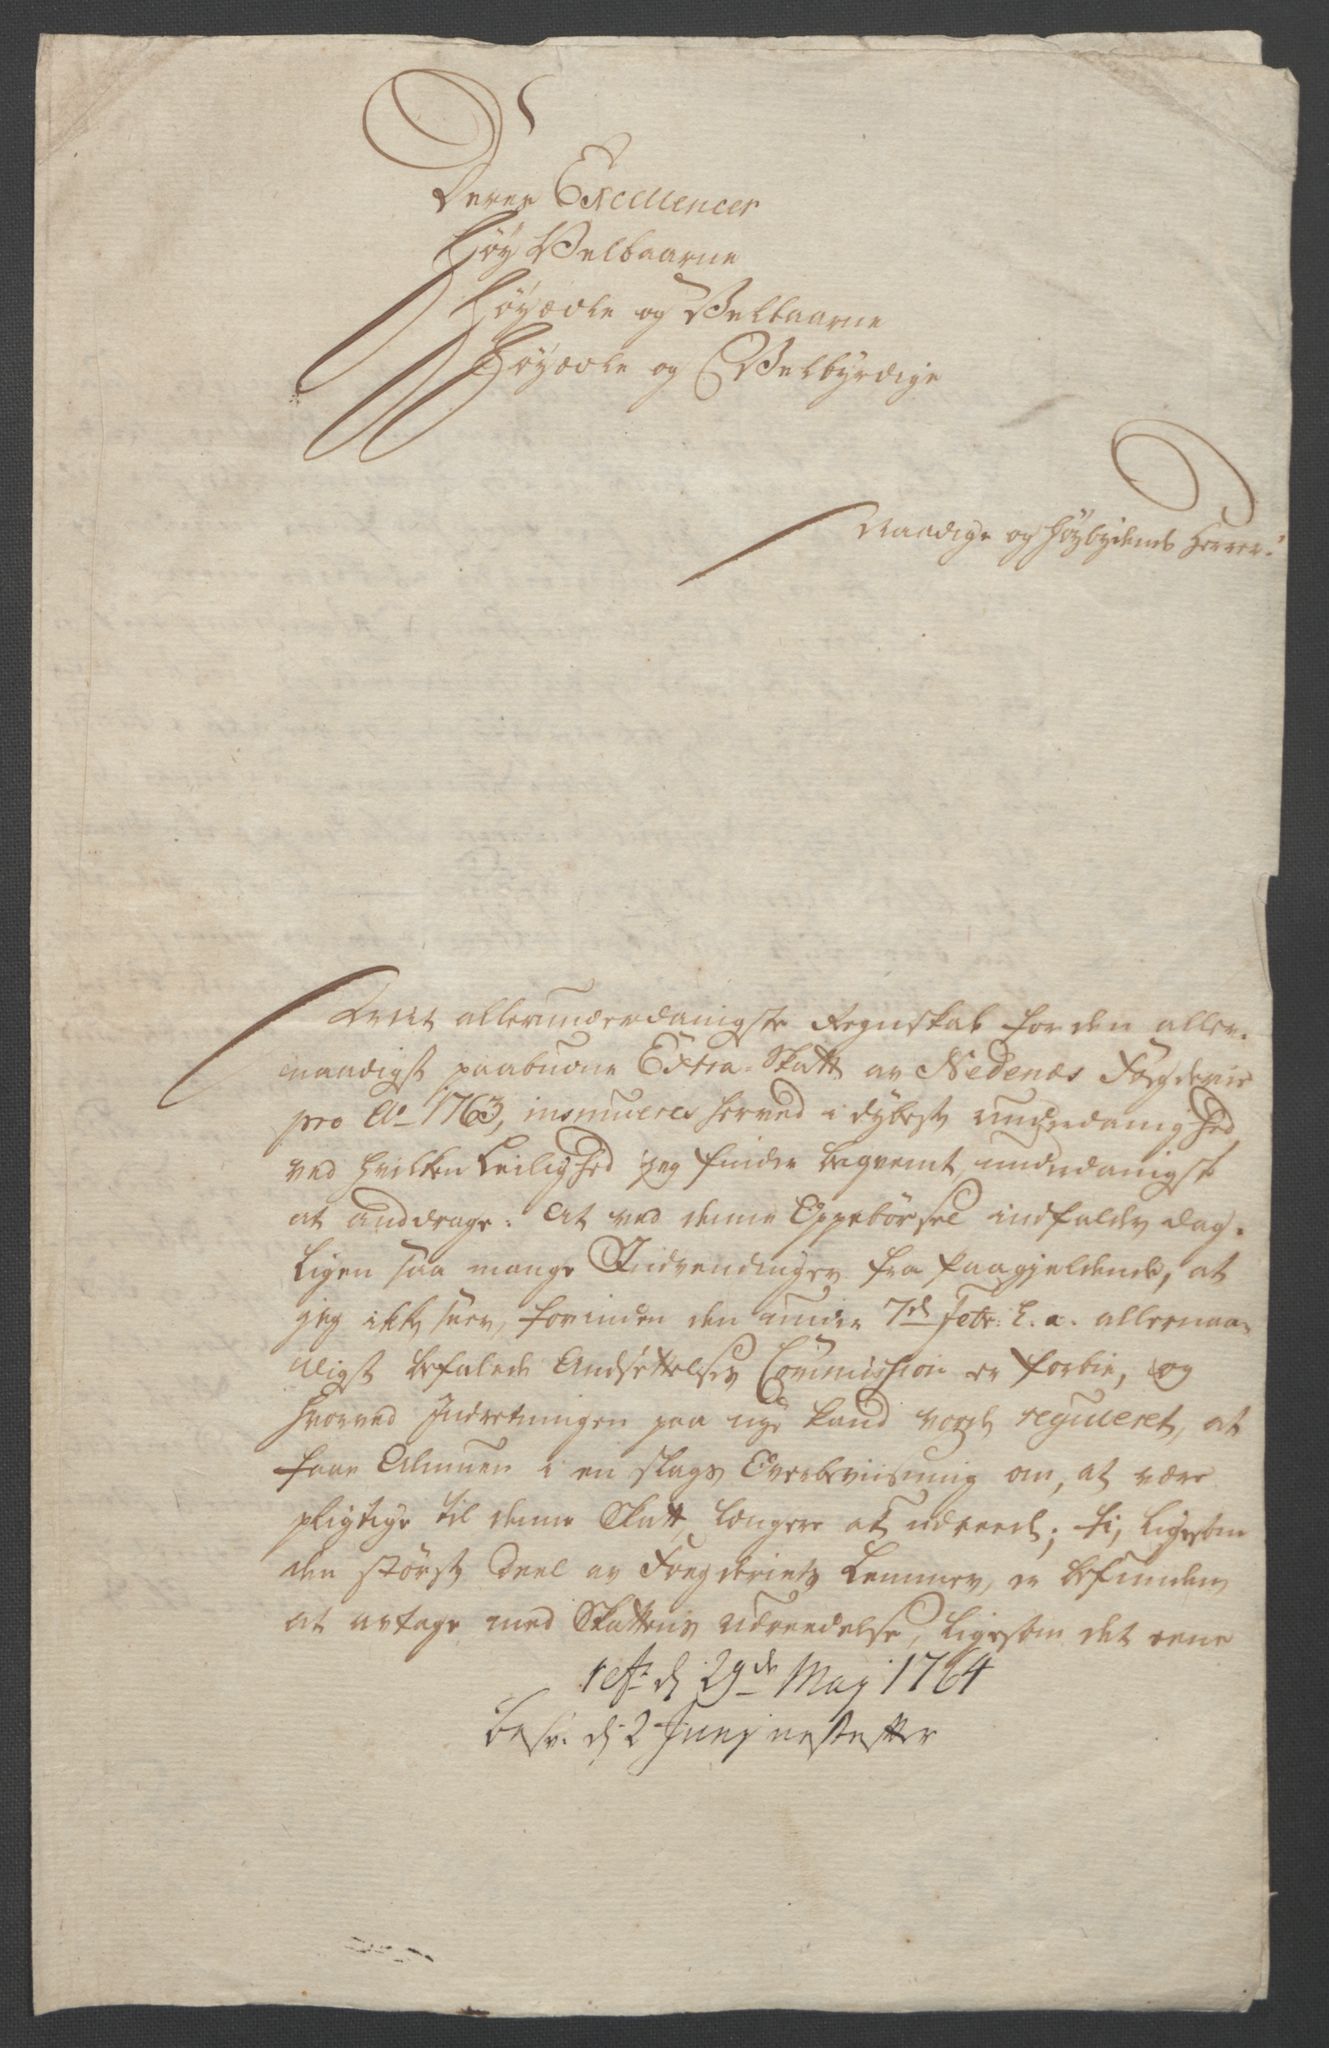 Deres Excellencer
Høy Velbaarne
Høyædle og Velbaarne
Høyædle og Velbyrdige
Naadige og Høybydende Herrer!
allerunderdanigste Regnskab for den aller-
naadigst paabudne Extra-Skatt av Nedenæs Fogderie
pro Ao 1763, insinueres herved i dybeste underdanighed,
ved hvilken Leilighed jeg finder beqvemt, underdanigst
at anddrage: At ved denne Oppebørsel indfalder dag-
ligen saa mange Indvendinger fra Paagjeldende, at
jeg ikke seer, forinden den under 7de Febr: h. a. allernaa-
digst befalede Andsettelses Commission er forbie, og
hvorved Indretningen paa nye kand vorde reguleret, at
faae Almuen i en slags Overbeviisning om, at være
pligtige til denne Skatt længere at udreede; thi, ligesom
den største Deel av Fogderiets Lemmer, er befunden
at avtage med Skattens Udreedelse, ligesom det eene
d 29de May 1764
Besv: d 2 Junij nestefter